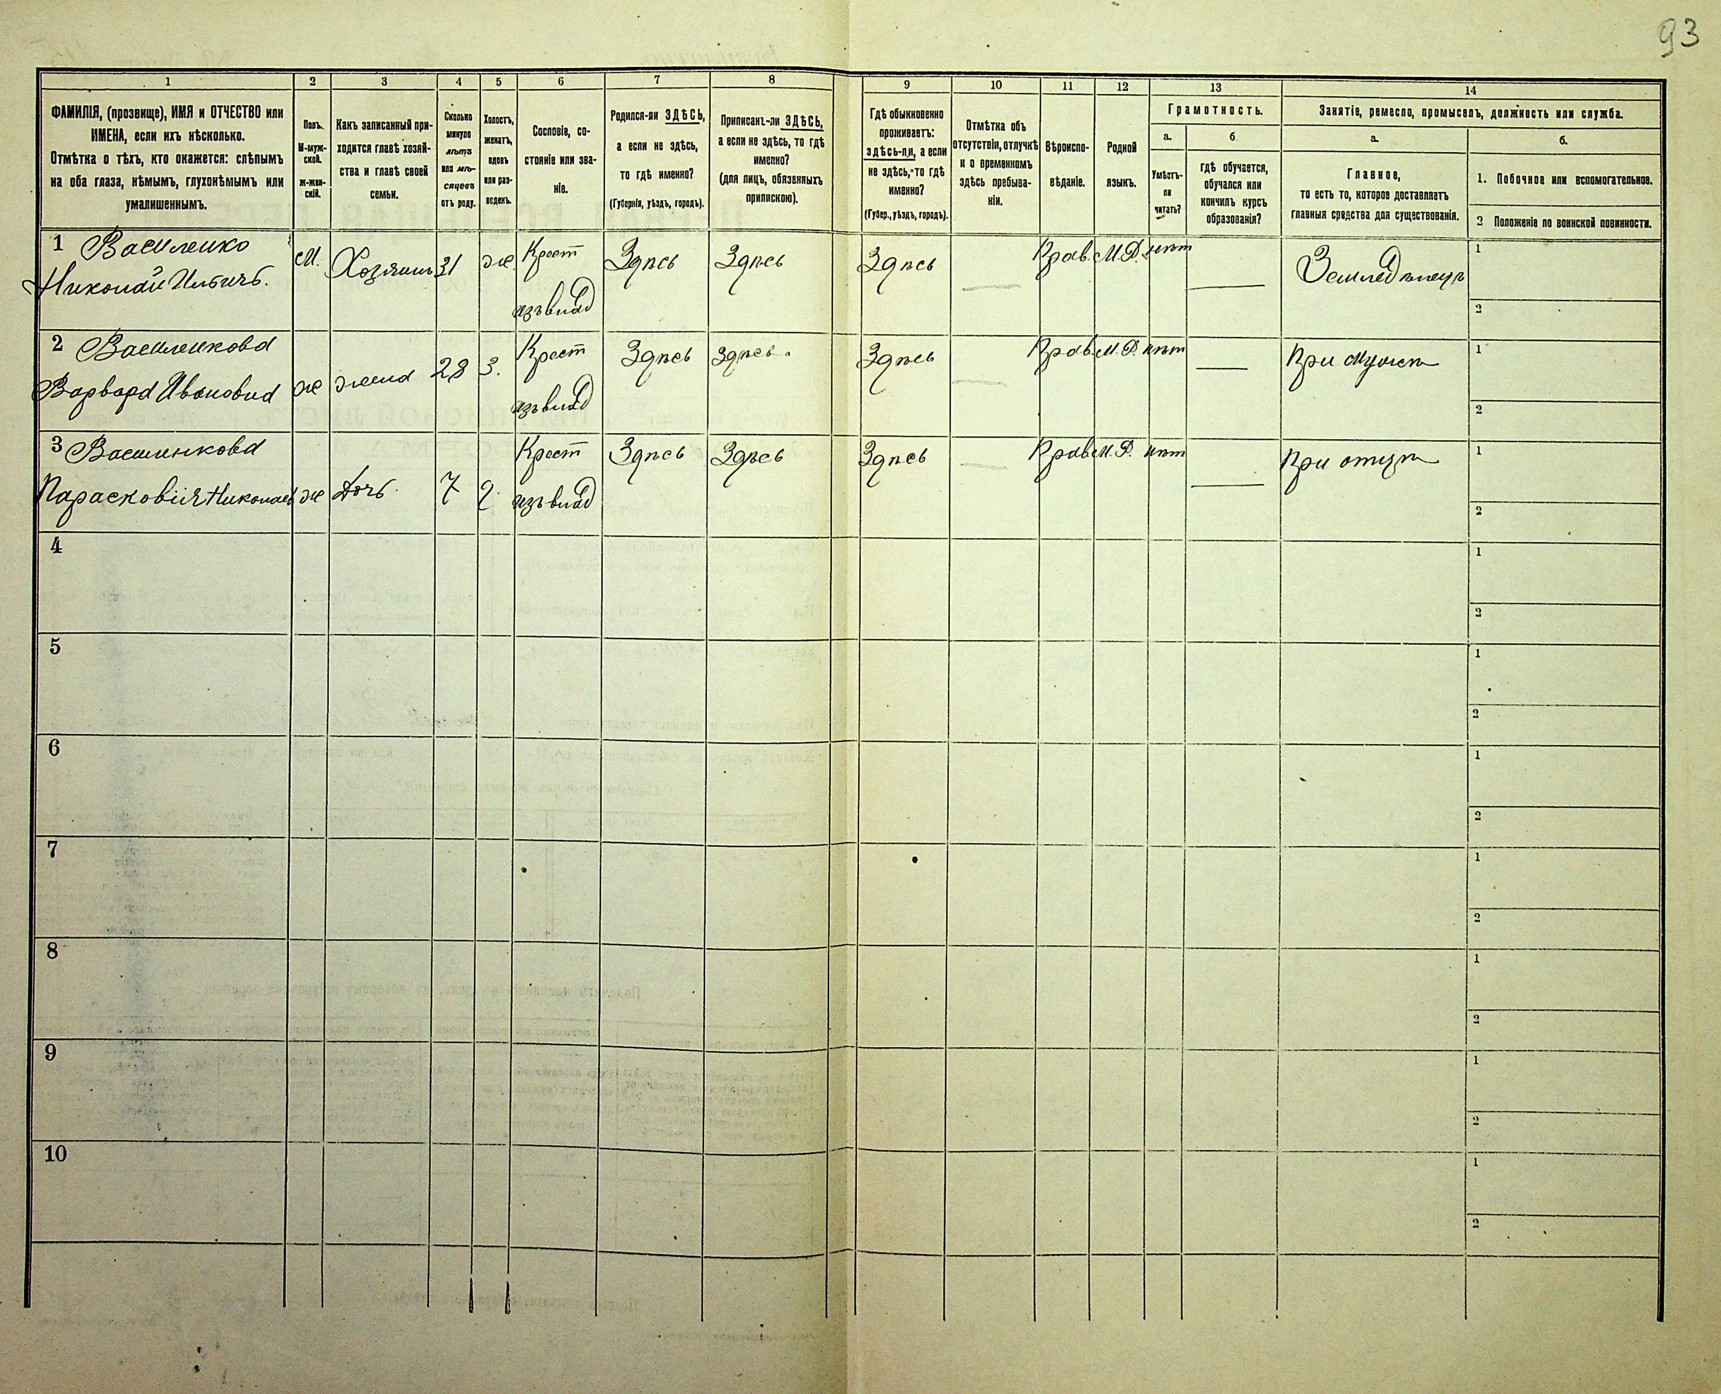 93
1 2 3 4 5 6 7 8 9 10 11 12 13 14
ФАМИЛІЯ, (прозвище), ИМЯ и ОТЧЕСТВО или
ИМЕНА, если ихъ нѣсколько.
Отмѣтка о тѣхъ, кто окажется: слѣпымъ
на оба глаза, нѣмымъ, глухонѣмымъ или
умалишеннымъ.
Полъ.
М-муж-
ской.
ж-жен-
скій.
Какъ записанный при-
ходится главѣ хозяй-
ства и главѣ своей
семьи.
Сколько
минуло
лѣтъ
или мѣ-
сяцевъ
отъ роду.
Холостъ,
женатъ,
вдовъ
или раз-
веденъ.
Сословіе, со-
стояніе или зва-
ніе.
Родился-ли ЗДѢСЬ,
а если не здѣсь,
то гдѣ именно?
(Губернія, уѣздъ, городъ).
Приписанъ-ли ЗДѢСЬ,
а если не здѣсь, то гдѣ
именно?
(для лицъ, обязанныхъ
припискою).
Гдѣ обыкновенно
проживаетъ:
здѣсь-ли, а если
не здѣсь,-то гдѣ
именно?
(Губер., уѣздъ, городъ).
Отмѣтка объ
отсутствіи, отлучкѣ
и о временномъ
здѣсь пребыва-
ніи.
Вѣроиспо-
вѣданіе.
Родной
языкъ.
Грамотность.
а.
Умѣетъ-
ли
читать?
б.
гдѣ обучается,
обучался или
кончилъ курсъ
образованія?
Занятіе, ремесло, промыселъ, должность или служба.
а.
Главное,
то есть то, которое доставляетъ
главныя средства для существованія.
б.
1. Побочное или вспомогательное.
2 Положеніе по воинской повинности.
1 Василенко М. Хозяинъ 31 ж. Крест Здѣсь Здѣсь Здѣсь Прав. М.Р. нѣт Земледѣлецъ 1
Николай Ильичъ. изъ влад 2
2 Василенкова ж жена 28 З. Крест Здѣсь Здѣсь. Здѣсь Прав. М.Р. нѣт При мужѣ 1
Варвара Ивановна изъ влад 2
3 Василенкова Крест Здѣсь Здѣсь Здѣсь Прав. М.Р. нѣт При отцѣ 1
Парасковія Николаев ж дочь 7 изъ влад 2
4 1
2
5 1
2
6 1
2
7 1
2
8 1
2
9 1
2
10 1
2